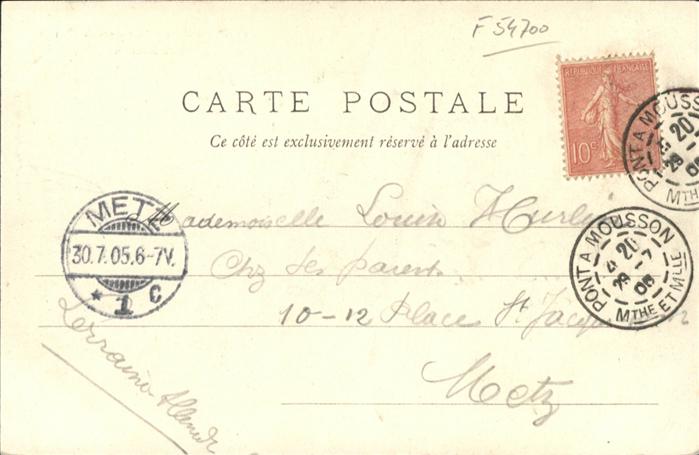 F 54700
CARTE POSTALE
Ce côté est exclusivement réservé à l'adresse
REPUBLIQUE FRANÇAISE
10c
PONT A MOUSSON
20
Mademoiselle Louise
METZ
30.7.05.6-7V.
* 1 c
PONT A MOUSSON
20
4 29 -7 05
MTHE ET MLLE
Chz ses parents
10-12 Place St Jacques
Metz
Lorraine